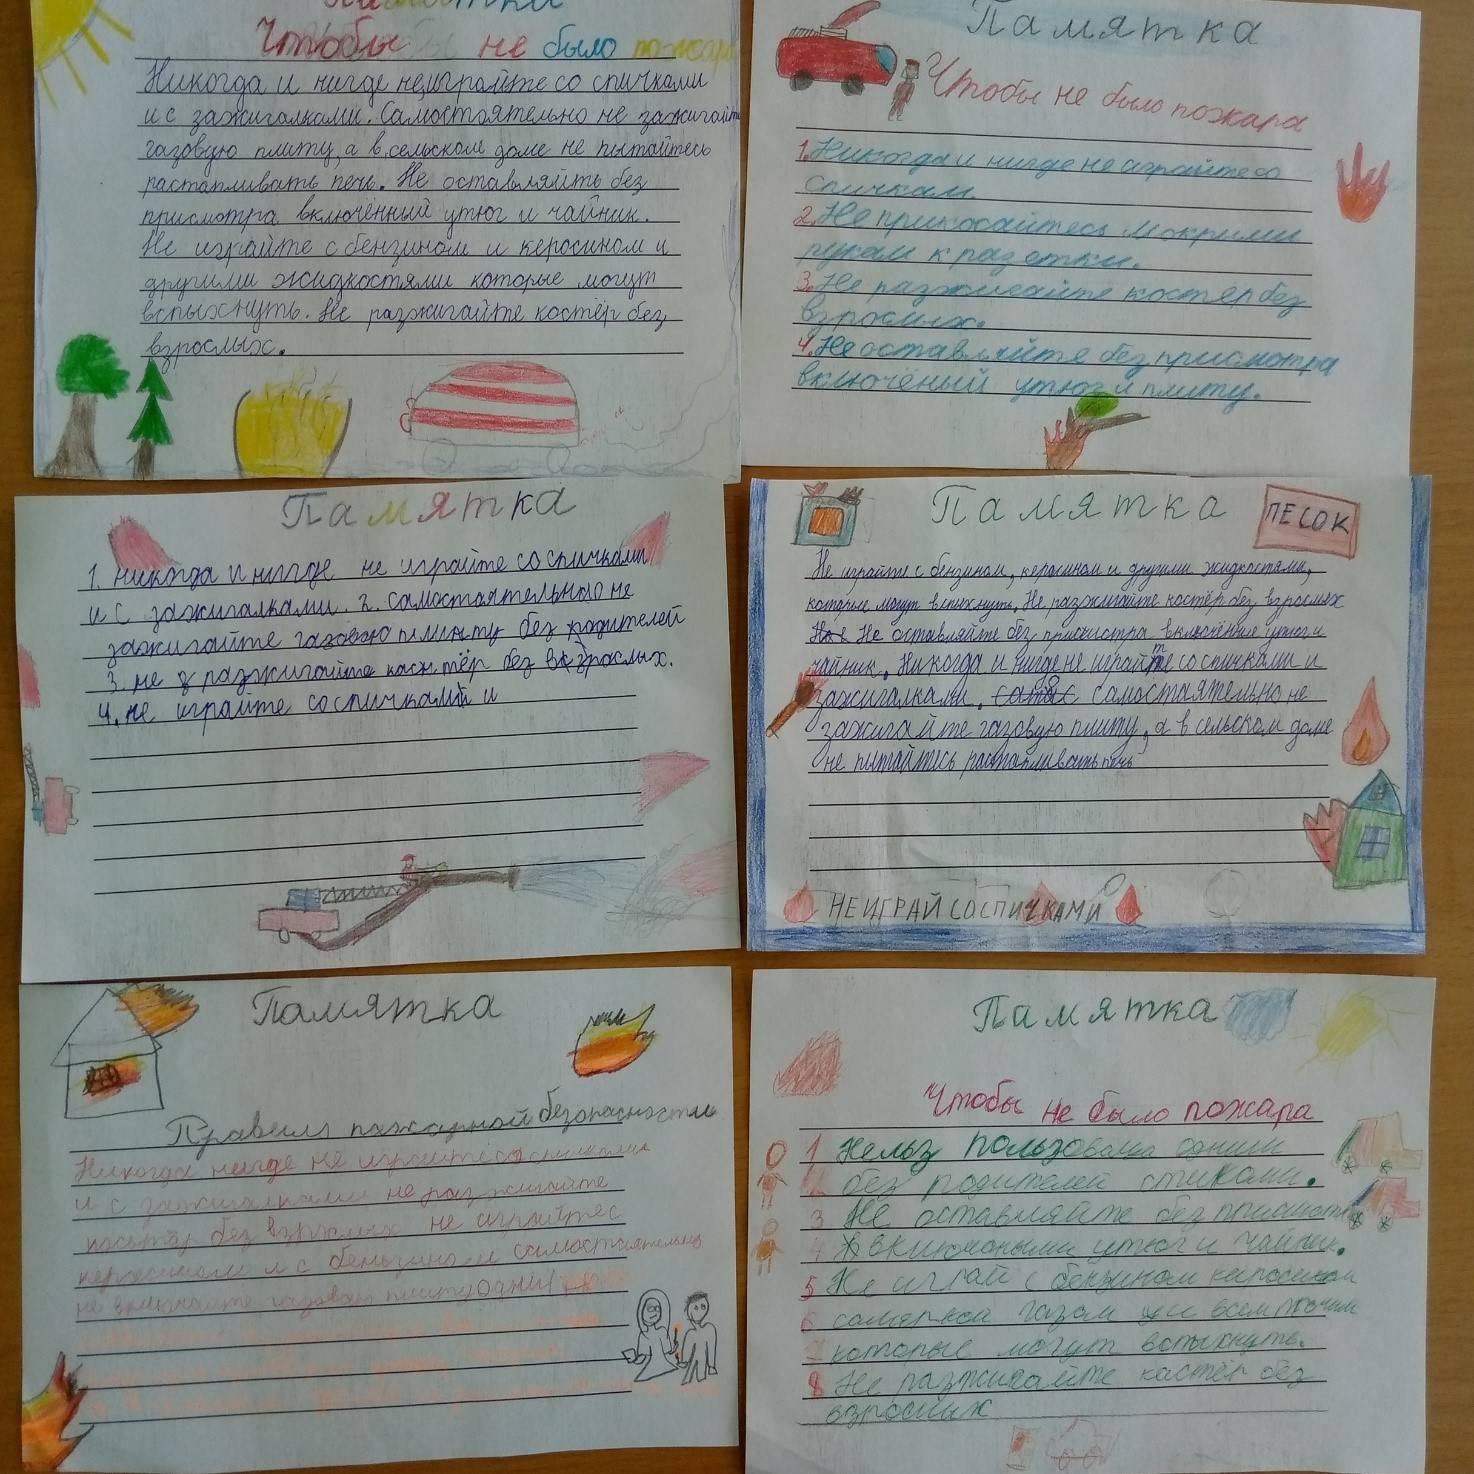 Памятка
Чтобы не было пожара
Никогда и нигде не играйте со спичками
и с зажигалками. Самостоятельно не зажигайте
газовую плиту, а в сельском доме не пытайтесь
растапливать печь. Не оставляйть без
присмотра включённый утюг и чайник.
Не играйте с бензином и керосином и
другими жидкостями которые могут
вспыхнуть. Не разжигайте костёр без
взрослых.
Памятка
Чтобы не было пожара
1. Никогда и нигде не играйте со
спичкам.
2. Не прикосайтесь мокрыми
рукам к разетки.
3. Не разжигайте костёр без
взрослых.
4. Не оставляйте без присмотра
включёный утюг и плиту.
Памятка
1. никогда и нигде не играйте со спичками
и с зажигалками. 2. самостоятельно не
зажигайте газовою плиту без родителей
3. не разжигайте костёр без взрослых.
4. не играйте со спичками и
Памятка
ПЕСОК
Не играйте с бензином, керосином и другими жидкостями,
которые могут вспыхнуть. Не разжигайте костёр без взрослых
Не оставляйте без присмотра включённые утюг и
чайник. Никогда и нигде не играйте со спичками и
зажигалками. самостоятельно не
зажигайте газовую плиту, а в сельском доме
не пытайтесь растапливать печь
НЕ ИГРАЙ СО СПИЧКАМИ
Памятка
Правила пажарной безопасности
Никогда нигде не играйте со спичками
и с зажигалками не разжигайте
костёр без взрослых не играйте с
керосином и с бензином самостоятельно
не включайте газовою плиту одни
Памятка
Чтобы не было пожара
1 Нельз пользоваться одним
2 без родителей спиками.
3 Не оставляйте без присмотр
4 включоными утюг и чайник.
5 Не играй с бензином керосином
6 газом и всем прочим
7 которые могут вспыхнуть.
8 Не разжигайте кастёр без
взрослых